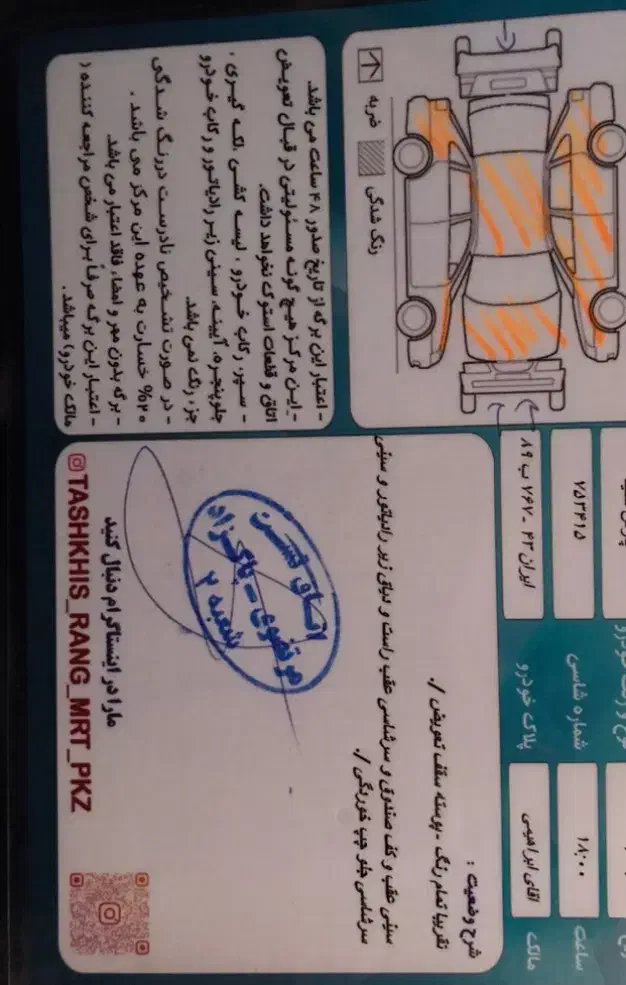 ساعت
۱۸:۰۰
شماره شاسی
۷۵۳۴۱۵
مالک
اقای ابراهیمی
پلاک خودرو
ایران ۴۳ - ۷۶۷ ب ۸۹
شرح وضعیت :
تقریبا تمام رنگ - پوسته سقف تعویض /.
سینی عقب و کف صندوق و سرشاسی عقب راست و دیاقی زیر رادیاتور و سینی
سرشاسی جلو چپ خوردگی /.
اتاق تست
مرتضوی - پاکزاد
شعبه ۲
مارا در اینستاگرام دنبال کنید
TASHKHIS_RANG_MRT_PKZ
ضربه
رنگ شدگی
- اعتبار این برگه از تاریخ صدور ۴۸ ساعت می باشد.
- این مرکز هیچ گونه مسئولیتی در قبال تعویض
اتاق و قطعات استوک نخواهد داشت.
- سپر، رکاب خودرو ، لیسه کشی ،لکه گیری ،
جلوپنجره، آیینه، سینی زیر رادیاتور و رکاب خودرو
جزء رنگ نمی باشد.
- در صورت تشخیص نادرست در رنگ شدگی
۲۰% خسارت به عهده این مرکز می باشد .
- برگه بدون مهر و امضاء فاقد اعتبار می باشد.
- اعتبار این برگه صرفاً برای شخص مراجعه کننده (
مالک خودرو) میباشد.